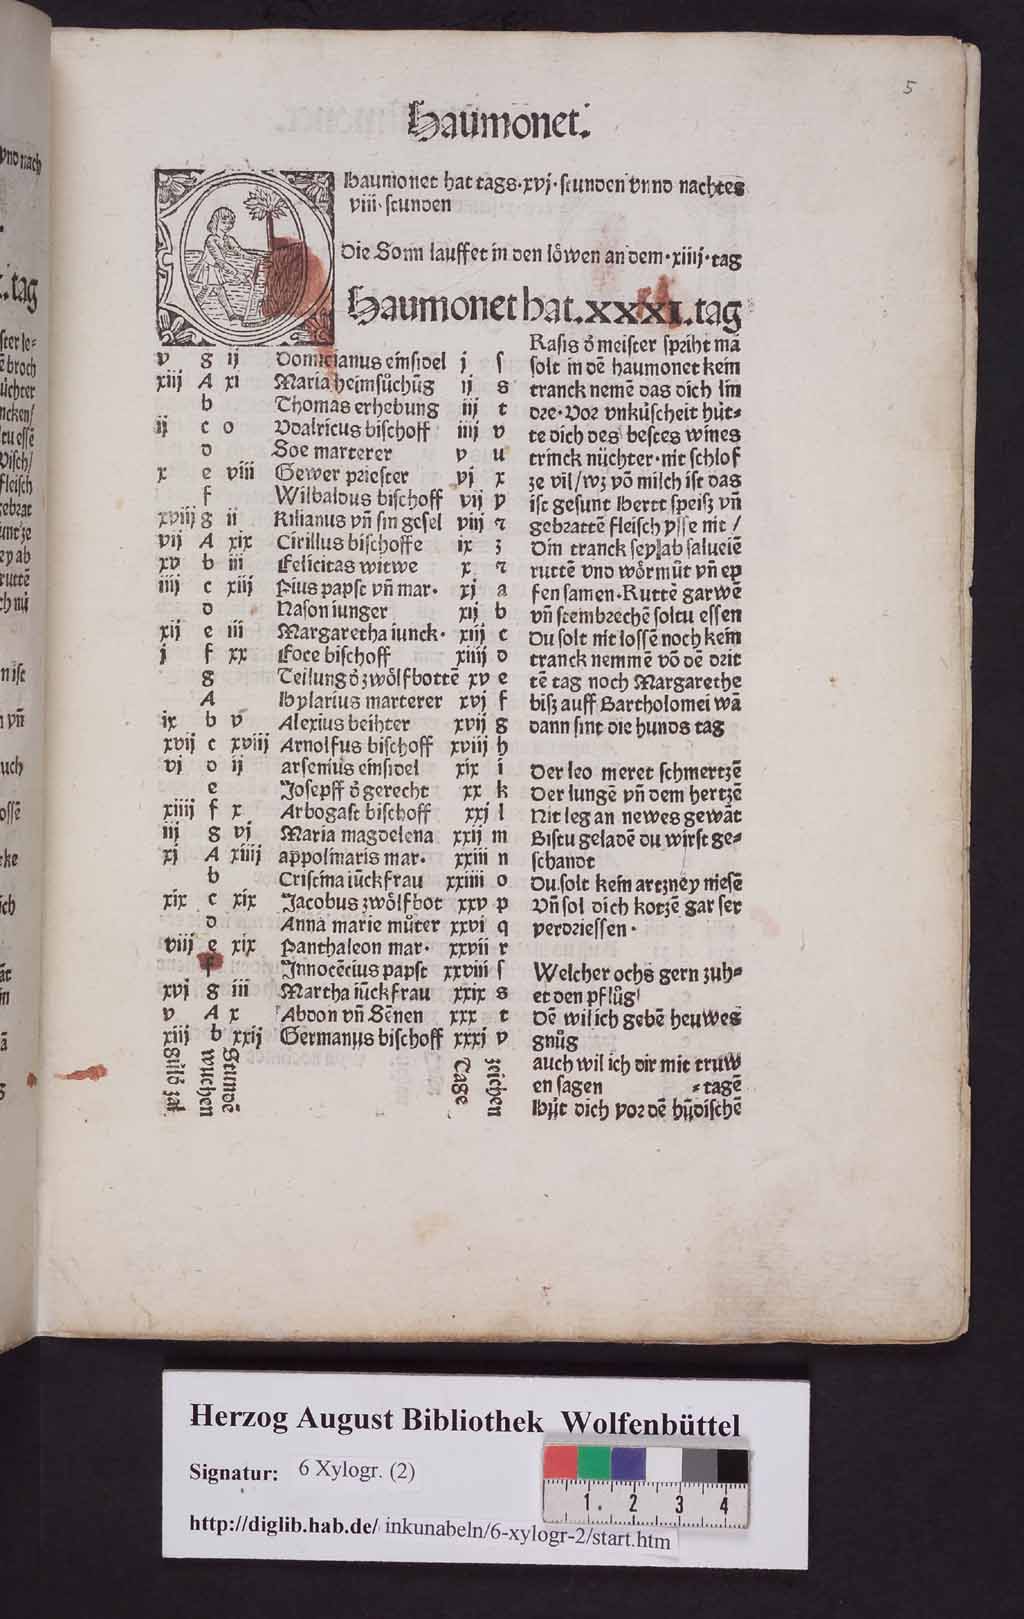 5
Haumonet.
Haumonet hat tags·xvj·stunden vnnd nachtes
viii·stunden
Die Sonn lauffet in den lőwen an dem·xiiij·tag
Haumonet hat.XXXI.tag
v g ij Domicianus einsidel j s
xiij A xi Maria heimsůchūg ij s
b Thomas erhebung iij t
ij c o Vdalricus bischoff iiij v
d Soe marterer v u
x e viii Gewer priester vj x
f Wilbaldus bischoff vij y
xviij g ii Kilianus vn̄ sin gesel viij z
vij A xix Cirillus bischoffe ix ʒ
xv b iii Felicitas witwe x z
iiij c xiij Pius papst vn̄ mar· xj a
d Nason iunger xij b
xij e iii Margaretha iunck· xiij c
j f xx Foce bischoff xiiij d
g Teilung ď zwőlfbottē xv e
A Hylarius marterer xvj f
ix b v Alexius beihter xvij g
xvij c xviij Arnolfus bischoff xviij h
vj d ij arsenius einsidel xix i
e Josepff ď gerecht xx k
xiiij f x Arbogast bischoff xxj l
iij g vj Maria magdelena xxij m
xj A xiiij appolinaris mar· xxiii n
b Cristina iūckfrau xxiiii o
xix c xix Jacobus zwőlfbot xxv p
d Anna marie můter xxvi q
viij e xix Panthaleon mar· xxvii r
f Innocēcius papst xxviii ſ
xvj g iii Martha iūckfrau xxix s
v A x Abdon vn̄ Sēnen xxx t
xiij b xxij Germanus bischoff xxxj v
Gůld zal
wuchen
Stundē
Tage
zeichen
Rasis ď meister spriht mā
solt in dē haumonet kein
tranck nemē das dich lin
dre·Vor vnkůscheit hůt⸗
te dich des bestes wines
trinck nüchter·nit schlof
ze vil/wz vō milch ist das
ist gesunt Hertt speisz vn̄
gebrattē fleisch ysse nit/
Din tranck sey ab salueiē
ruttē vnd wőrmůt vn̄ ep
fen samen·Ruttē garwē
vn̄ stembrechē soltu essen
Du solt nit lossē noch kein
tranck nemmē vō dē drit
tē tag noch Margarethe
bisz auff Bartholomei wā
dann sint die hunds tag
Der leo meret schmertzē
Der lungē vn̄ dem hertzē
Nit leg an newes gewāt
Bistu geladē du wirst ge⸗
schandt
Du solt kein artzney niesē
Vn̄ sol dich kotzē gar ser
verdriessen·
Welcher ochs gern zuh⸗
et den pflůg
Dē wil ich gebē heuwes
gnůg
auch wil ich dir mit truw
en sagen ⸗tagē
Hůt dich vor dē hůdischē
Herzog August Bibliothek Wolfenbüttel
Signatur: 6 Xylogr. (2)
http://diglib.hab.de/ inkunabeln/6-xylogr-2/start.htm
1 2 3 4